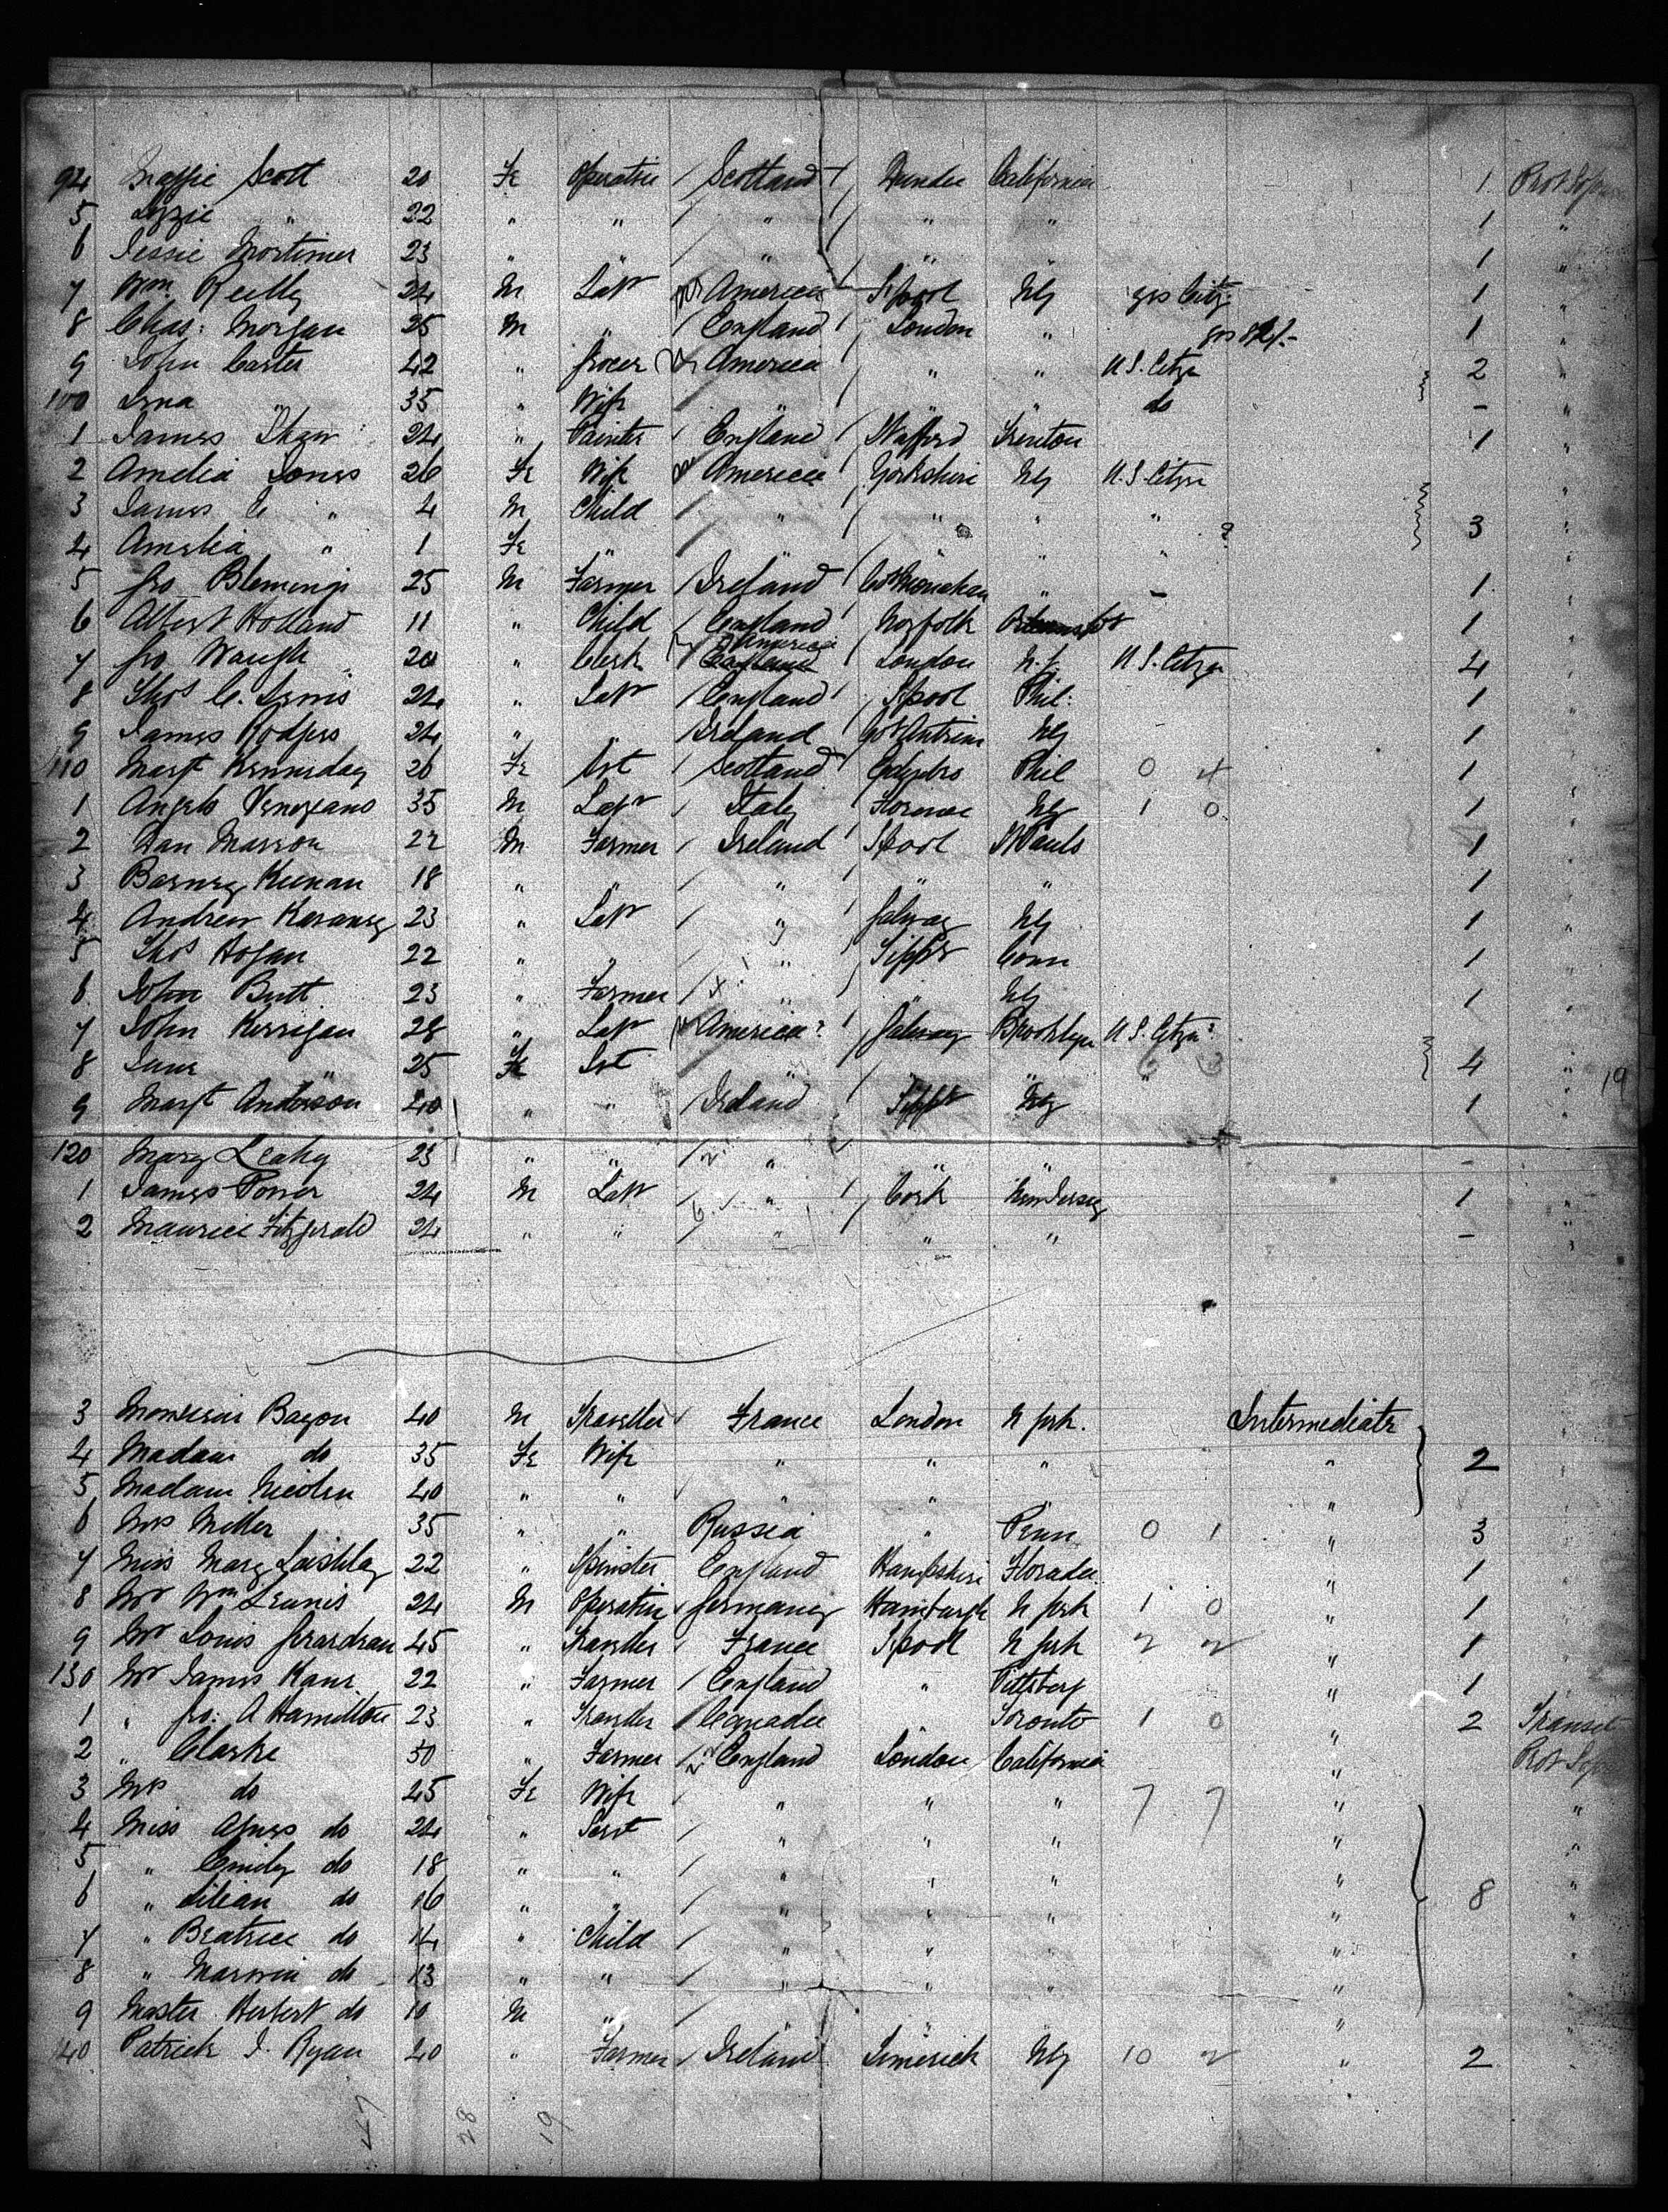 94 Maggie Scott 20 Fe Operative / Scotland / Dundee California 1
5 Lizzie " 22 " " / " / " " 1 "
6 Jessie Mortimer 23 " " / " / " " 1 "
7 Wm Reilly 24 M Labr America / L'pool NY Citz 1 "
8 Chas: Morgan 25 M " / England / London " 1 "
9 John Carter 42 " Grocer America / " " U.S. Citzn 2 "
100 " 35 " Wife / " " " do - "
1 James Shaw 24 " Painter / England / Stafford Trenton 1 "
2 Amelia Jones 26 Fe Wife America / Yorkshire NY U.S. Citzn "
3 James " 4 M Child / " / " " " 3 "
4 Amelia " 1 Fe " / " / " " " ? "
5 Geo Fleming 25 M Farmer / Ireland / Co Monaghan " - 1 "
6 Albert Holland 11 " Child / England / Norfolk 1 "
7 Geo Waugh 20 " Clerk America England / London N.Y. U.S. Citzn 4 "
8 Thos C. Lewis 24 " Labr / England / L'pool Phil: 1 "
9 James Rodgers 24 " " / Ireland / Co Antrim NY 1 "
110 Margt 26 Fe / Scotland / Phil 0 1 "
1 Angelo Veneziano 35 M Labr / Italy / Florence NY 1 0 1 "
2 Dan Marron 22 M Farmer / Ireland / L'pool St Pauls 1 "
3 Barney Keenan 18 " " / " / " " 1 "
4 Andrew 23 " Labr / " / Galway NY 1 "
5 Thos Hogan 22 " " / " / Tippy Conn 1 "
6 John Butt 23 " Farmer / " / " NY 1 "
7 John Kerrigan 28 " Labr America? / Galway Brooklyn U.S. Citzn? "
8 Jane " 25 Fe " / " " " 4 "
9 Margt Anderson 40 " " / Ireland / Tippy NY 1 " 19
120 Mary Leahy 23 " " / " / " " - "
1 James Power 24 M Labr / " / Cork New Jersey 1 "
2 Maurice Fitzgerald 24 " " / " / " " - "
3 Monsieur Bazon 40 M Traveller / France London N York. Intermediate
4 Madam do 35 Fe Wife " " " " 2
5 Madam Nicolin 40 " " / " " " "
6 Mrs Miller 35 " " Russia " Penn 0 1 " 3
7 Miss Mary 22 " Spinster England Hampshire Florada " 1
8 Mr Wm 24 M Operative / Germany Hamburgh N York 1 0 " 1
9 Mr Louis 45 " Traveller / France L'pool N York 2 2 " 1
130 Mr James Kane 22 " Farmer / England " Pittsberg " 1
1 " Geo: A Hamilton 23 " Traveller / Canada Toronto 1 0 " 2 Transit
2 " Clarke 50 " Farmer / England London California "
3 Mrs do 45 Fe Wife / " " " 7 7 " "
4 Miss Agnes do 24 " Servt / " " " " "
5 " Emily do 18 " " / " " " " "
6 " Lilian do 16 " " / " " " " 8 "
7 " Beatrice do 14 " Child / " " " " "
8 " do 13 " " / " " " " "
9 Master Herbert do 10 M " / " " " " "
140 Patrick J. Ryan 40 " Farmer / Ireland Limerick NY 10 2 " 2 "
28 19